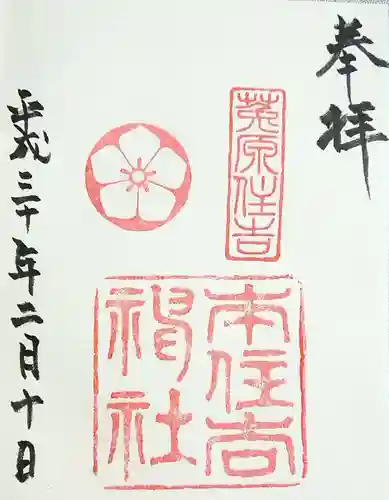 奉拝
莵原住吉
本住吉
神社
平成三十年二月十日